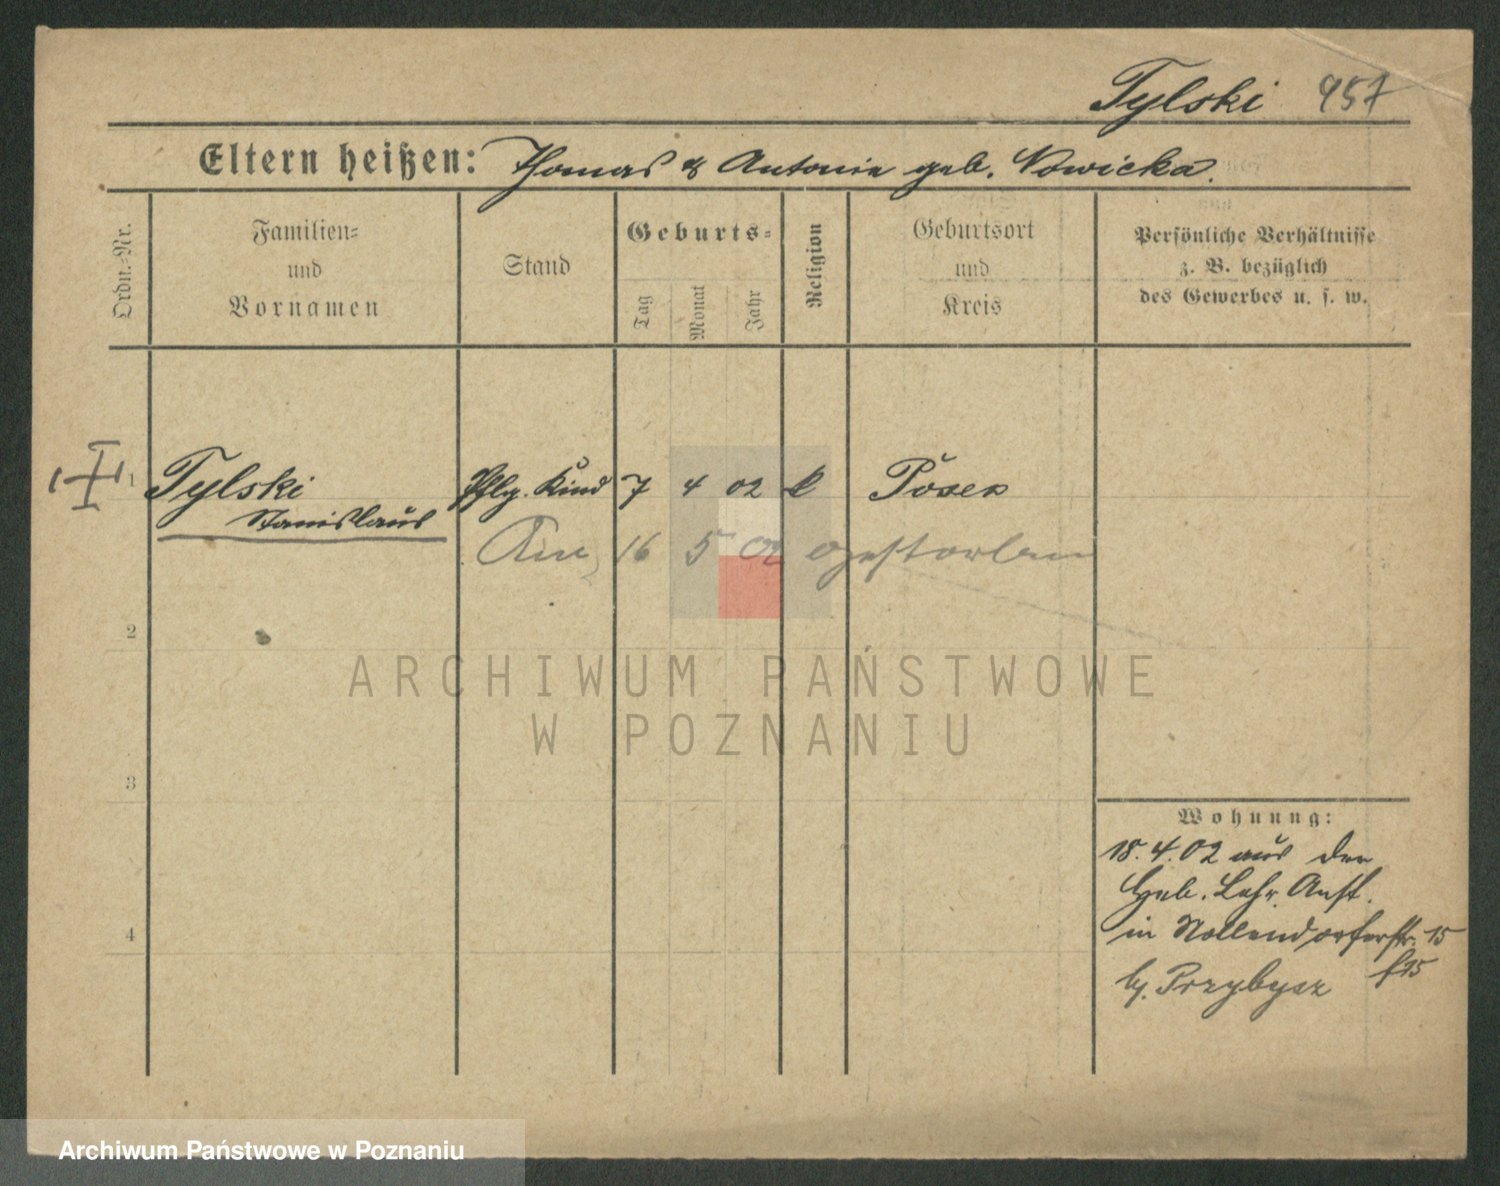 Tylski 957
Eltern heißen: Thomas & Antonie geb. Nowicka.
Ordn.-Nr.
Familien-
und
Vornamen
Stand
Geburts-
Tag
Monat
Jahr
Religion
Geburtsort
und
Kreis
Persönliche Verhältnisse
z. B. bezüglich
des Gewerbes u. s. w.
1 Tylski Pflg. Kind 7 4 02 k Posen
Stanislaus
Am 16 5 02 gestorben
2
3
4
Wohnung:
18.4.02 aus der
Heb. Lehr. Anst.
in Nollendorferstr. 15
b. Przybysz
ARCHIWUM PAŃSTWOWE
W POZNANIU
Archiwum Państwowe w Poznaniu